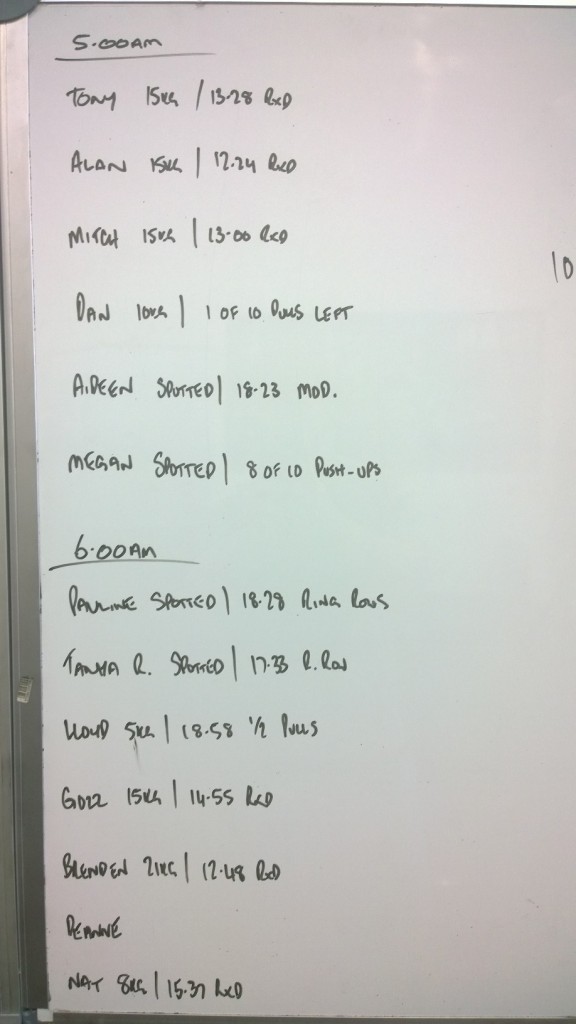 5.00AM
TONY 15KG / 13.28 RXD
ALAN 15KG | 12.24 RXD
MITCH 15KG | 13.00 RXD
10
DAN 10KG | 1 OF 10 PULLS LEFT
AIDEEN SPOTTED | 18.23 MOD.
MEGAN SPOTTED | 8 OF 10 PUSH-UPS
6.00AM
PAULINE SPOTTED | 18.28 RING ROWS
TANYA R. SPOTTED | 17.33 R. ROW
LLOYD 5KG | 18.58 1/2 PULLS
GOZZ 15KG | 14.55 RXD
BRENDEN 21KG | 12.48 RXD
DEANNE
NAT 8KG | 15.37 RXD